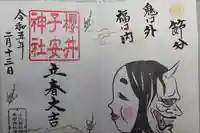 節分
鬼は外
福は内
立春大吉
櫻井
子安
神社
令和五年
二月十三日